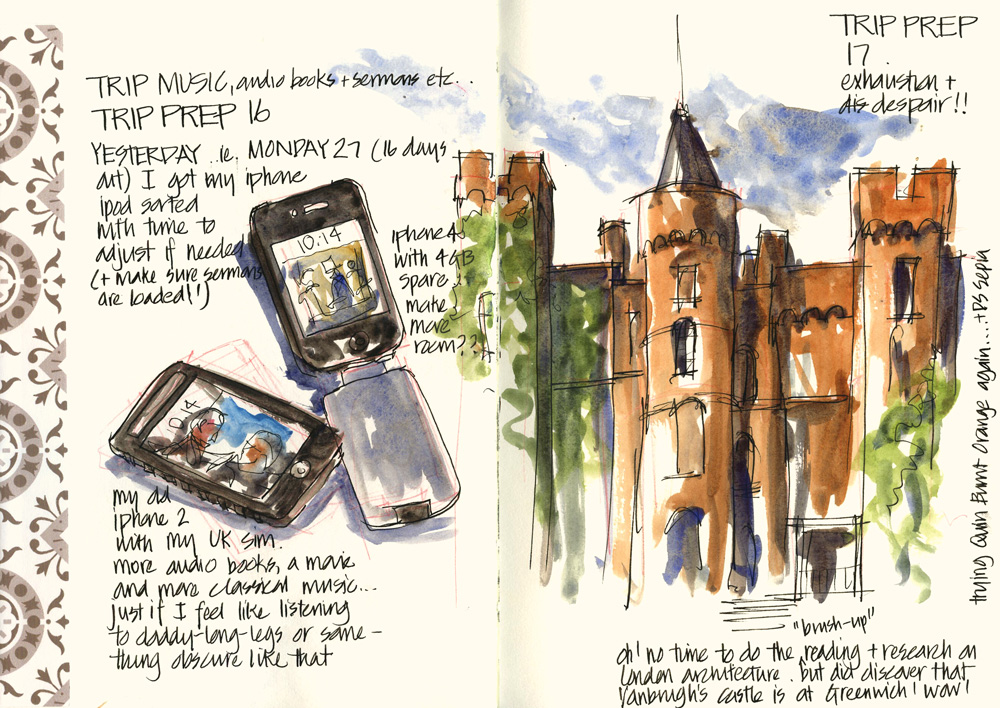 TRIP MUSIC, audio books + sermons etc...
TRIP PREP 16
YESTERDAY ..ie. MONDAY 27 (16 days
out) I got my iphone
ipod sorted
with time to
adjust if needed
(+ make sure sermons
are loaded!!)
10:14
iphone 4s
with 4GB
spare...
make
more
room??
my old
iphone 2
with my UK sim.
more audio books, a movie
and more classical music...
just if I feel like listening
to daddy-long-legs or some-
thing obscure like that
TRIP PREP
17.
exhaustion +
despair!!
trying Quin Burnt Orange again....+ PS sepia
"brush-up"
oh! no time to do the reading + research on
London architecture. but did discover that
Vanbrugh's castle is at Greenwich! wow!